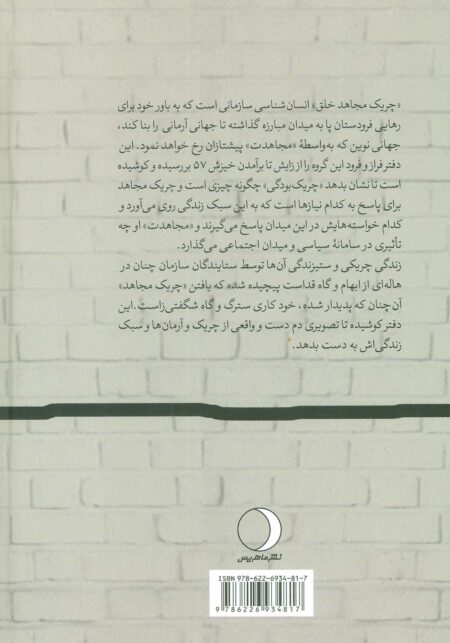 «چریک مجاهد خلق» انسان‌شناسی سازمانی است که به باور خود برای
رهایی فرودستان پا به میدان مبارزه گذاشته تا جهانی آرمانی را بنا کند،
جهانی نوین که به‌واسطهٔ «مجاهدت» پیشتازان رخ خواهد نمود. این
دفتر فراز و فرود این گروه را از زایش تا برآمدن خیزش ۵۷ بررسیده و کوشیده
است تا نشان بدهد «چریک‌بودگی» چگونه چیزی است و چریک مجاهد
برای پاسخ به کدام نیازها است که به این سبک زندگی روی می‌آورد و
کدام خواسته‌هایش در این میدان پاسخ می‌گیرند و «مجاهدت» او چه
تأثیری در سامانهٔ سیاسی و میدان اجتماعی می‌گذارد.
زندگی چریکی و ستیزندگی آن‌ها توسط ستایندگان سازمان چنان در
هاله‌ای از ابهام و گاه قداست پیچیده شده که یافتن «چریک مجاهد»
آن‌چنان که پدیدار شده، خود کاری سترگ و گاه شگفتی‌زاست. این
دفتر کوشیده تا تصویری دم دست و واقعی از چریک و آرمان‌ها و سبک
زندگی‌اش به دست بدهد.
نشر ماهریس
ISBN 978-622-6934-81-7
9 786226 934817